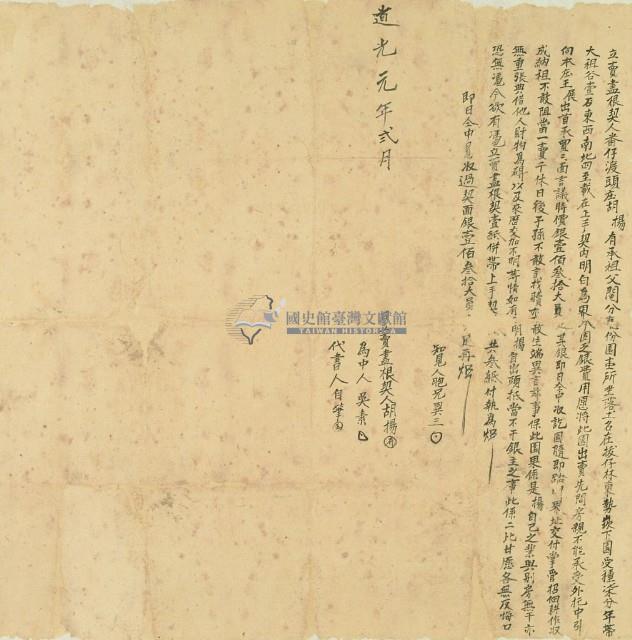 立賣盡根契人番仔渡頭庄胡揚有承祖父鬮分應份園壹所坐落土名在拔仔林東勢崁下園受種柒分年帶
大租谷壹石東西南北四至載在上手契內明白為界今因乏銀費用愿將此園出賣先問房親不能承受外托中引
向本庄王展出首承買三面言議時價銀壹佰叁拾大員其銀即日仝中收訖園隨即踏明界址交付掌管招佃耕作收
成納租不敢阻當一賣千休日後子孫不敢言找贖亦敢生端異言滋事保此園果係是揚自己之業與別房無干亦
無重張典借他人財物為碍以及來歷交加不明等情如有不明揚首出頭抵當不干銀主之事此係二比甘愿各無反悔口
恐無憑今欲有憑立賣盡根契壹紙併帶上手契共叁紙付執為炤
即日仝中見收過契面銀壹佰叁拾大員足再炤
知見人胞兄異三
立賣盡根契人胡揚
為中人吳素
代書人自筆
道光元年弍月
國史館臺灣文獻館
TAIWAN HISTORICA